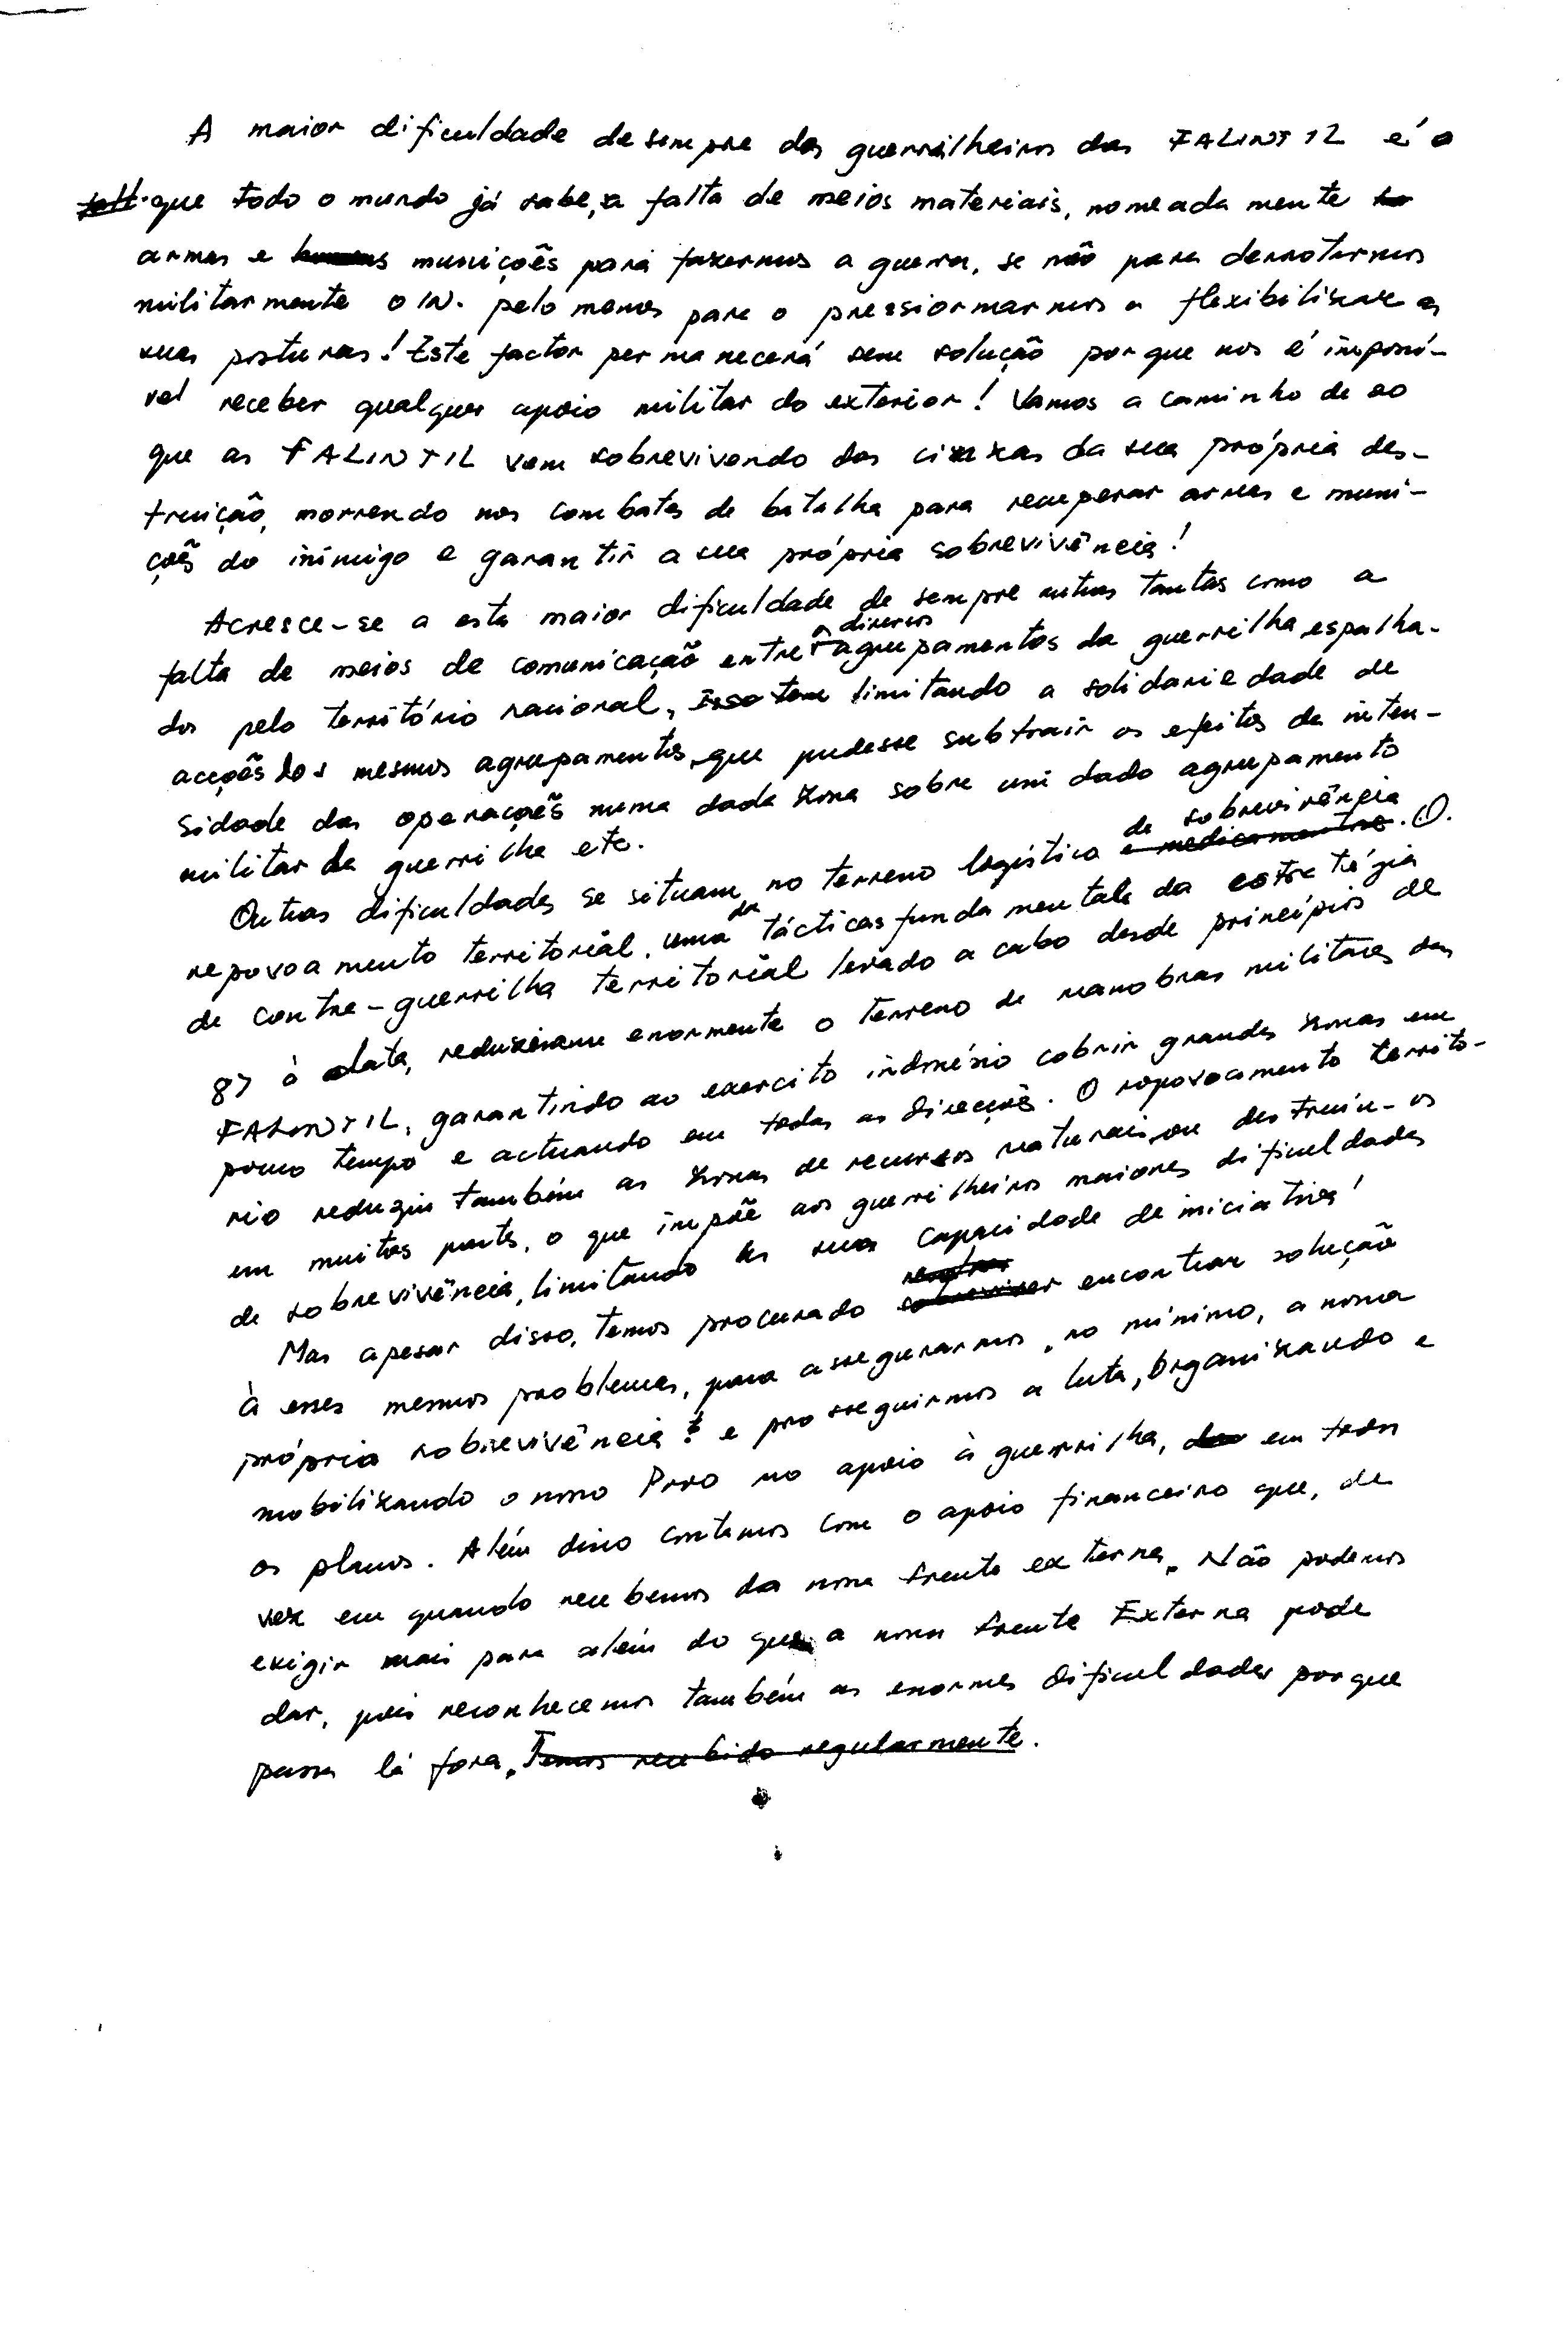 A maior dificuldade de sempre dos guerrilheiros das FALINTIL é o
que todo o mundo já sabe, a falta de meios materiais, nomeadamente
armas e munições para fazermos a guerra, se não para derrotarmos
militarmente o IN. pelo menos para o pressionarmos a flexibilizar as
suas posturas! Este factor permanecerá sem solução porque nos é impossí-
vel receber qualquer apoio militar do exterior! Vamos a caminho de 20
que as FALINTIL vem sobrevivendo das cinzas da sua própria des-
truição, morrendo nos combates de batalha para recuperar armas e muni-
ções do inimigo e garantir a sua própria sobrevivência!
Acresce-se a esta maior dificuldade de sempre outras tantas como a
falta de meios de comunicação entre os diversos agrupamentos da guerrilha espalha-
dos pelo território nacional, limitando a solidariedade de
acções dos mesmos agrupamentos, que pudesse subtrair os efeitos da inten-
sidade das operações numa dada zona sobre um dado agrupamento
militar da guerrilha etc.
Outras dificuldades se situam no terreno logístico de sobrevivência. O.
repovoamento territorial, uma das tácticas fundamentais da estratégia
de contra-guerrilha territorial levado a cabo desde princípios de
87 à data, reduziram enormente o terreno de manobras militares das
FALINTIL, garantindo ao exercito indonésio cobrir grandes zonas em
pouco tempo e actuando em todas as direcções. O repovoamento territo-
rio reduziu também as zonas de recursos naturais, ou destruiu-os
em muitas partes, o que impõe aos guerrilheiros maiores dificuldades
de sobrevivência, limitando as suas capacidade de iniciativa!
Mas apesar disso, temos procurado encontrar solução
à esses mesmos problemas, para assegurarmos, no mínimo, a nossa
própria sobrevivência! e prosseguirmos a luta, organizando e
mobilizando o nosso Povo no apoio à guerrilha, em todos
os planos. Além disso contamos com o apoio financeiro que, de
vez em quando recebemos da nossa frente externa. Não podemos
exigir mais para além do que a nossa frente Externa pode
dar, pois reconhecemos também as enormes dificuldades porque
passa lá fora. Temos recebido regularmente.